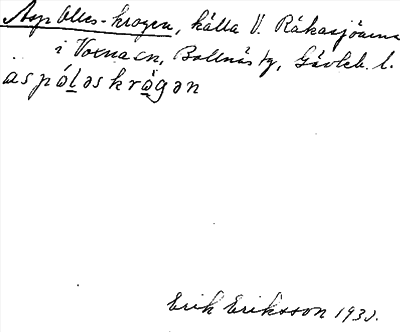 Asp Olles-krogen, källa V. Råkasjöarna
i Voxna sn, Bollnäs tg, Gävleb. l.
aspólǝskrǻgǝn
Erik Eriksson 193